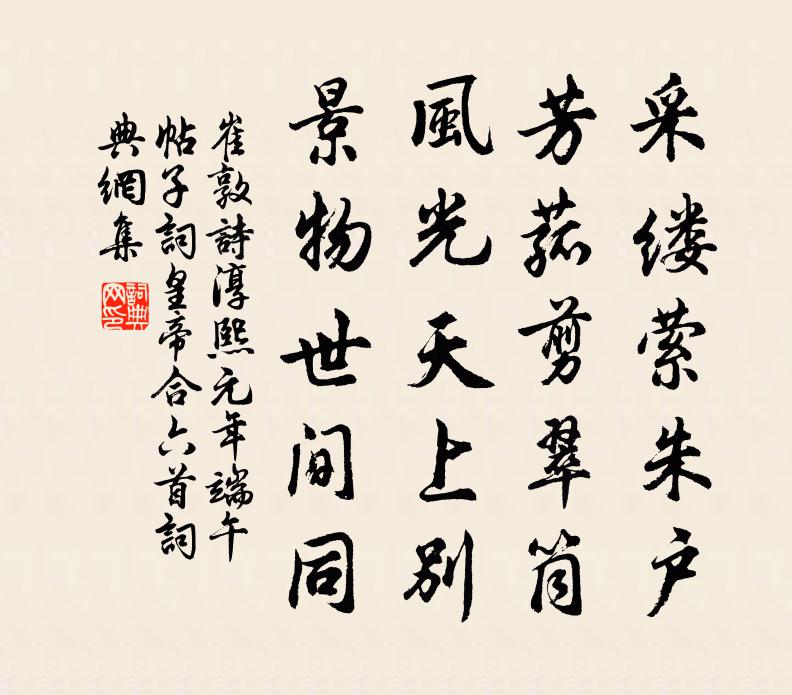 采缕萦朱户
芳菰剪翠筒
風光天上別
景物世间同
崔敦詩淳熙元年端午
帖子詞皇帝合六首詞
典網集
詞典
网印